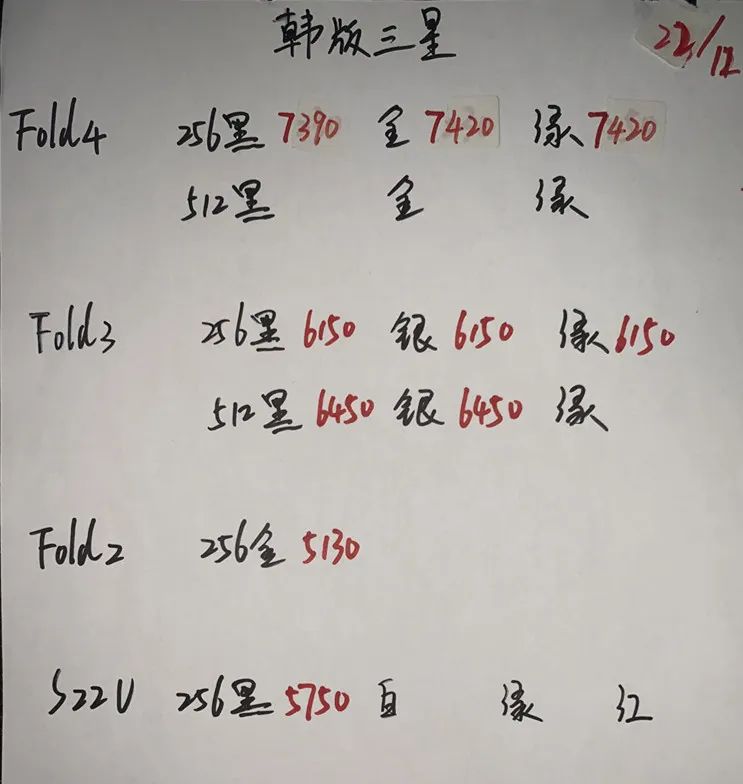 韩版三星 22/12
Fold4 256黑 7390 金 7420 绿 7420
512黑 金 绿
Fold3 256黑 6150 银 6150 绿 6150
512黑 6450 银 6450 绿
Fold2 256金 5130
S22U 256黑 5750 白 绿 红